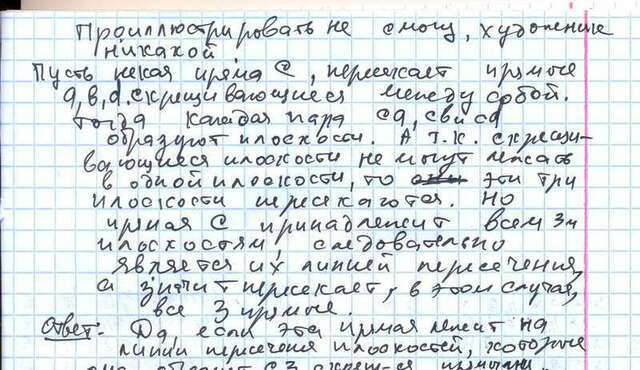 Проиллюстрировать не смогу, художение
никакой.
Пусть некая пряма С, пересекает прямые
а, в, d. скрещивающиеся между собой.
Тогда каждая пара са, св и сd
образуют плоскости. А т.к. скрещи-
вающиеся плоскости не могут лежать
в одной плоскости, то эти три
плоскости пересекаются. Но
прямая С принадлежит всем 3м
плоскостям, следовательно
является их линией пересечения,
а значит пересекает, в этом случае,
все 3 прямые.
Ответ: Да, если эта прямая лежит на
линии пересечения плоскостей, которые
она образует с 3 скрещ-ся прямыми.